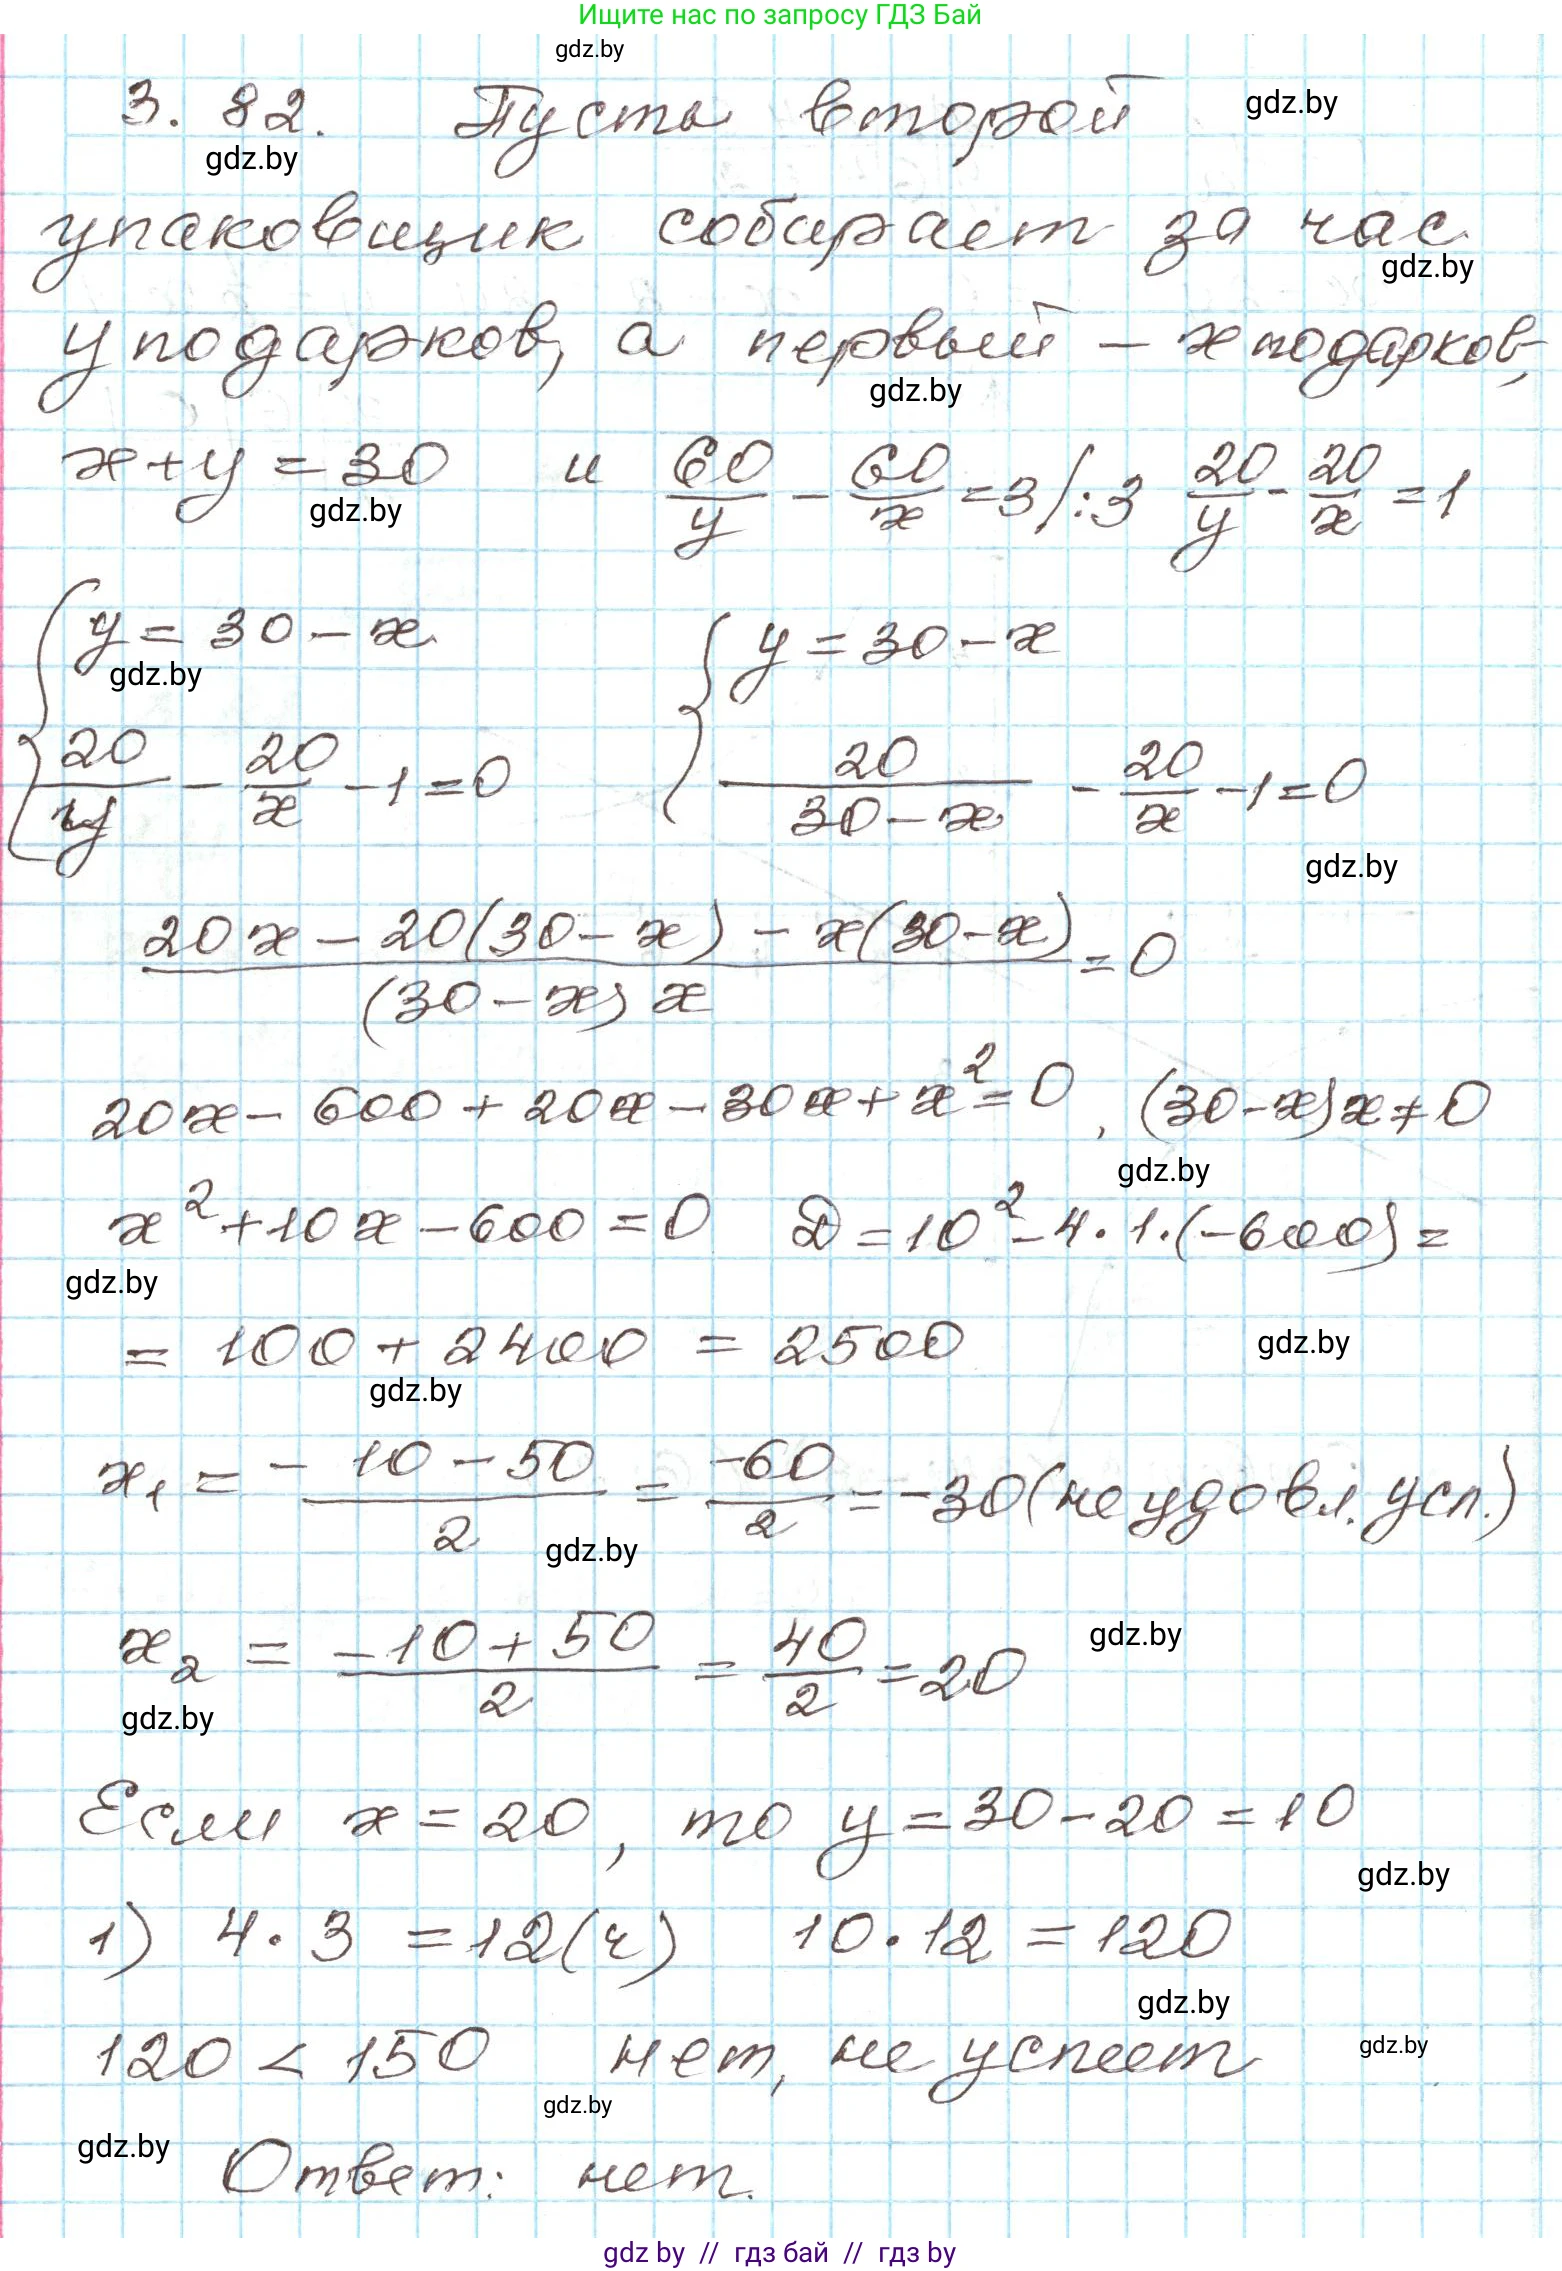 Ищите нас по запросу ГДЗ Бай
gdz.by
3. 82. Пусть второй
gdz.by
gdz.by
упаковщик собирает за час
gdz.by
y подарков, а первый – x подарков,
gdz.by
x + y = 30 и 60/y - 60/x = 3 /:3 20/y - 20/x = 1
gdz.by
{ y = 30 - x { y = 30 - x
gdz.by
20/y - 20/x - 1 = 0 20/(30 - x) - 20/x - 1 = 0
gdz.by
(20x - 20(30 - x) - x(30 - x))/((30 - x) x) = 0
20x - 600 + 20x - 30x + x² = 0, (30 - x)x ≠ 0
gdz.by
x² + 10x - 600 = 0 D = 10² - 4 · 1 · (-600) =
gdz.by
= 100 + 2400 = 2500
gdz.by
gdz.by
x₁ = (-10 - 50)/2 = -60/2 = -30 (не удовл. усл.)
gdz.by
x₂ = (-10 + 50)/2 = 40/2 = 20
gdz.by
gdz.by
Если x = 20, то y = 30 - 20 = 10
gdz.by
1) 4 · 3 = 12 (ч) 10 · 12 = 120
gdz.by
120 < 150 нет, не успеет
gdz.by
gdz.by
gdz.by
Ответ: нет.
gdz by // гдз бай // гдз by